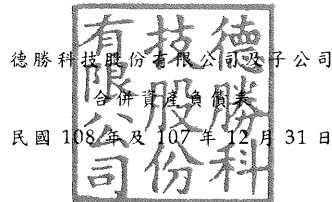 德勝科技股份有限公司及子公司
合併資產負債表
民國 108 年及 107 年 12 月 31 日
德勝科
技股份
有限公司